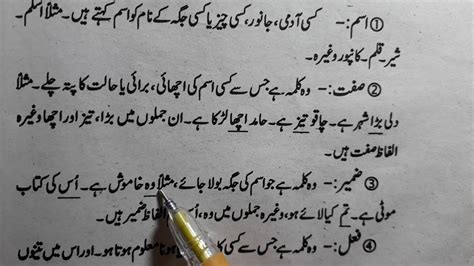 ① اسم:- کسی آدمی، جانور، کسی چیز یا کسی جگہ کے نام کو اسم کہتے ہیں۔ مثلاً اسلم۔
شیر۔ قلم۔ کانپور وغیرہ۔
② صفت:- وہ کلمہ ہے جس سے کسی اسم کی اچھائی، برائی یا حالت کا پتہ چلے۔ مثلاً
دلی بڑا شہر ہے۔ چاقو تیز ہے۔ حامد اچھا لڑکا ہے۔ ان جملوں میں بڑا، تیز اور اچھا وغیرہ
الفاظ صفت ہیں۔
③ ضمیر:- وہ کلمہ ہے جو اسم کی جگہ بولا جائے، مثلاً وہ خاموش ہے۔ اُس کی کتاب
موٹی ہے۔ تم کیا لائے ہو، وغیرہ جملوں میں وہ، اُس الفاظ ضمیر ہیں۔
④ فعل:- وہ کلمہ ہے جس سے کسی کا ہونا معلوم ہوتا ہو۔ اور اس میں تینوں